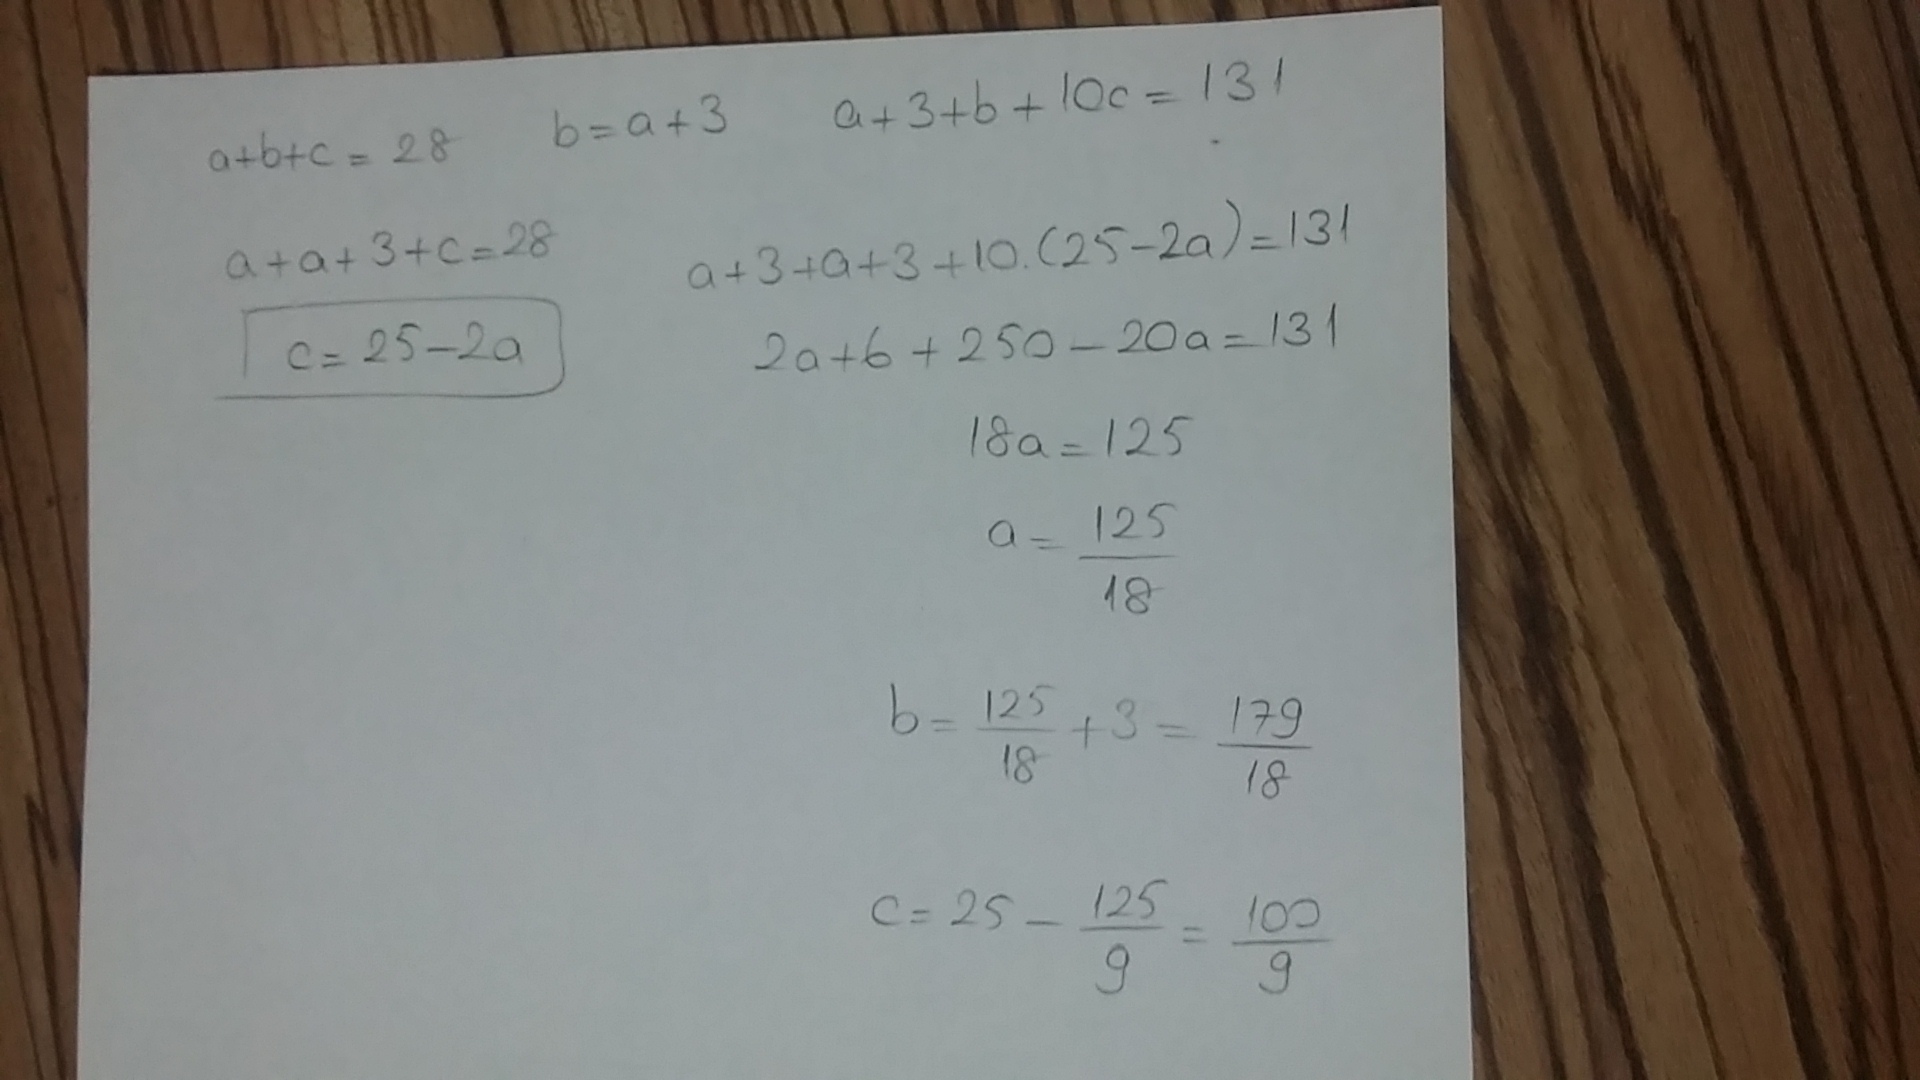 a+b+c = 28 b=a+3 a+3+b+10c=131
a+a+3+c=28 a+3+a+3+10.(25-2a)=131
c=25-2a 2a+6+250-20a=131
18a=125
a=125/18
b=125/18+3=179/18
c=25-125/9=100/9